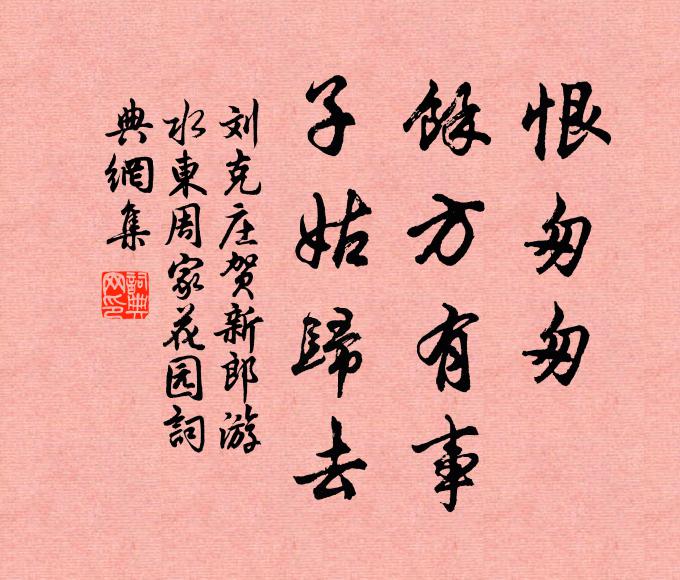 恨匆匆
餘方有事
子姑歸去
刘克庄贺新郎游
水東周家花园詞
典網集
詞典网印